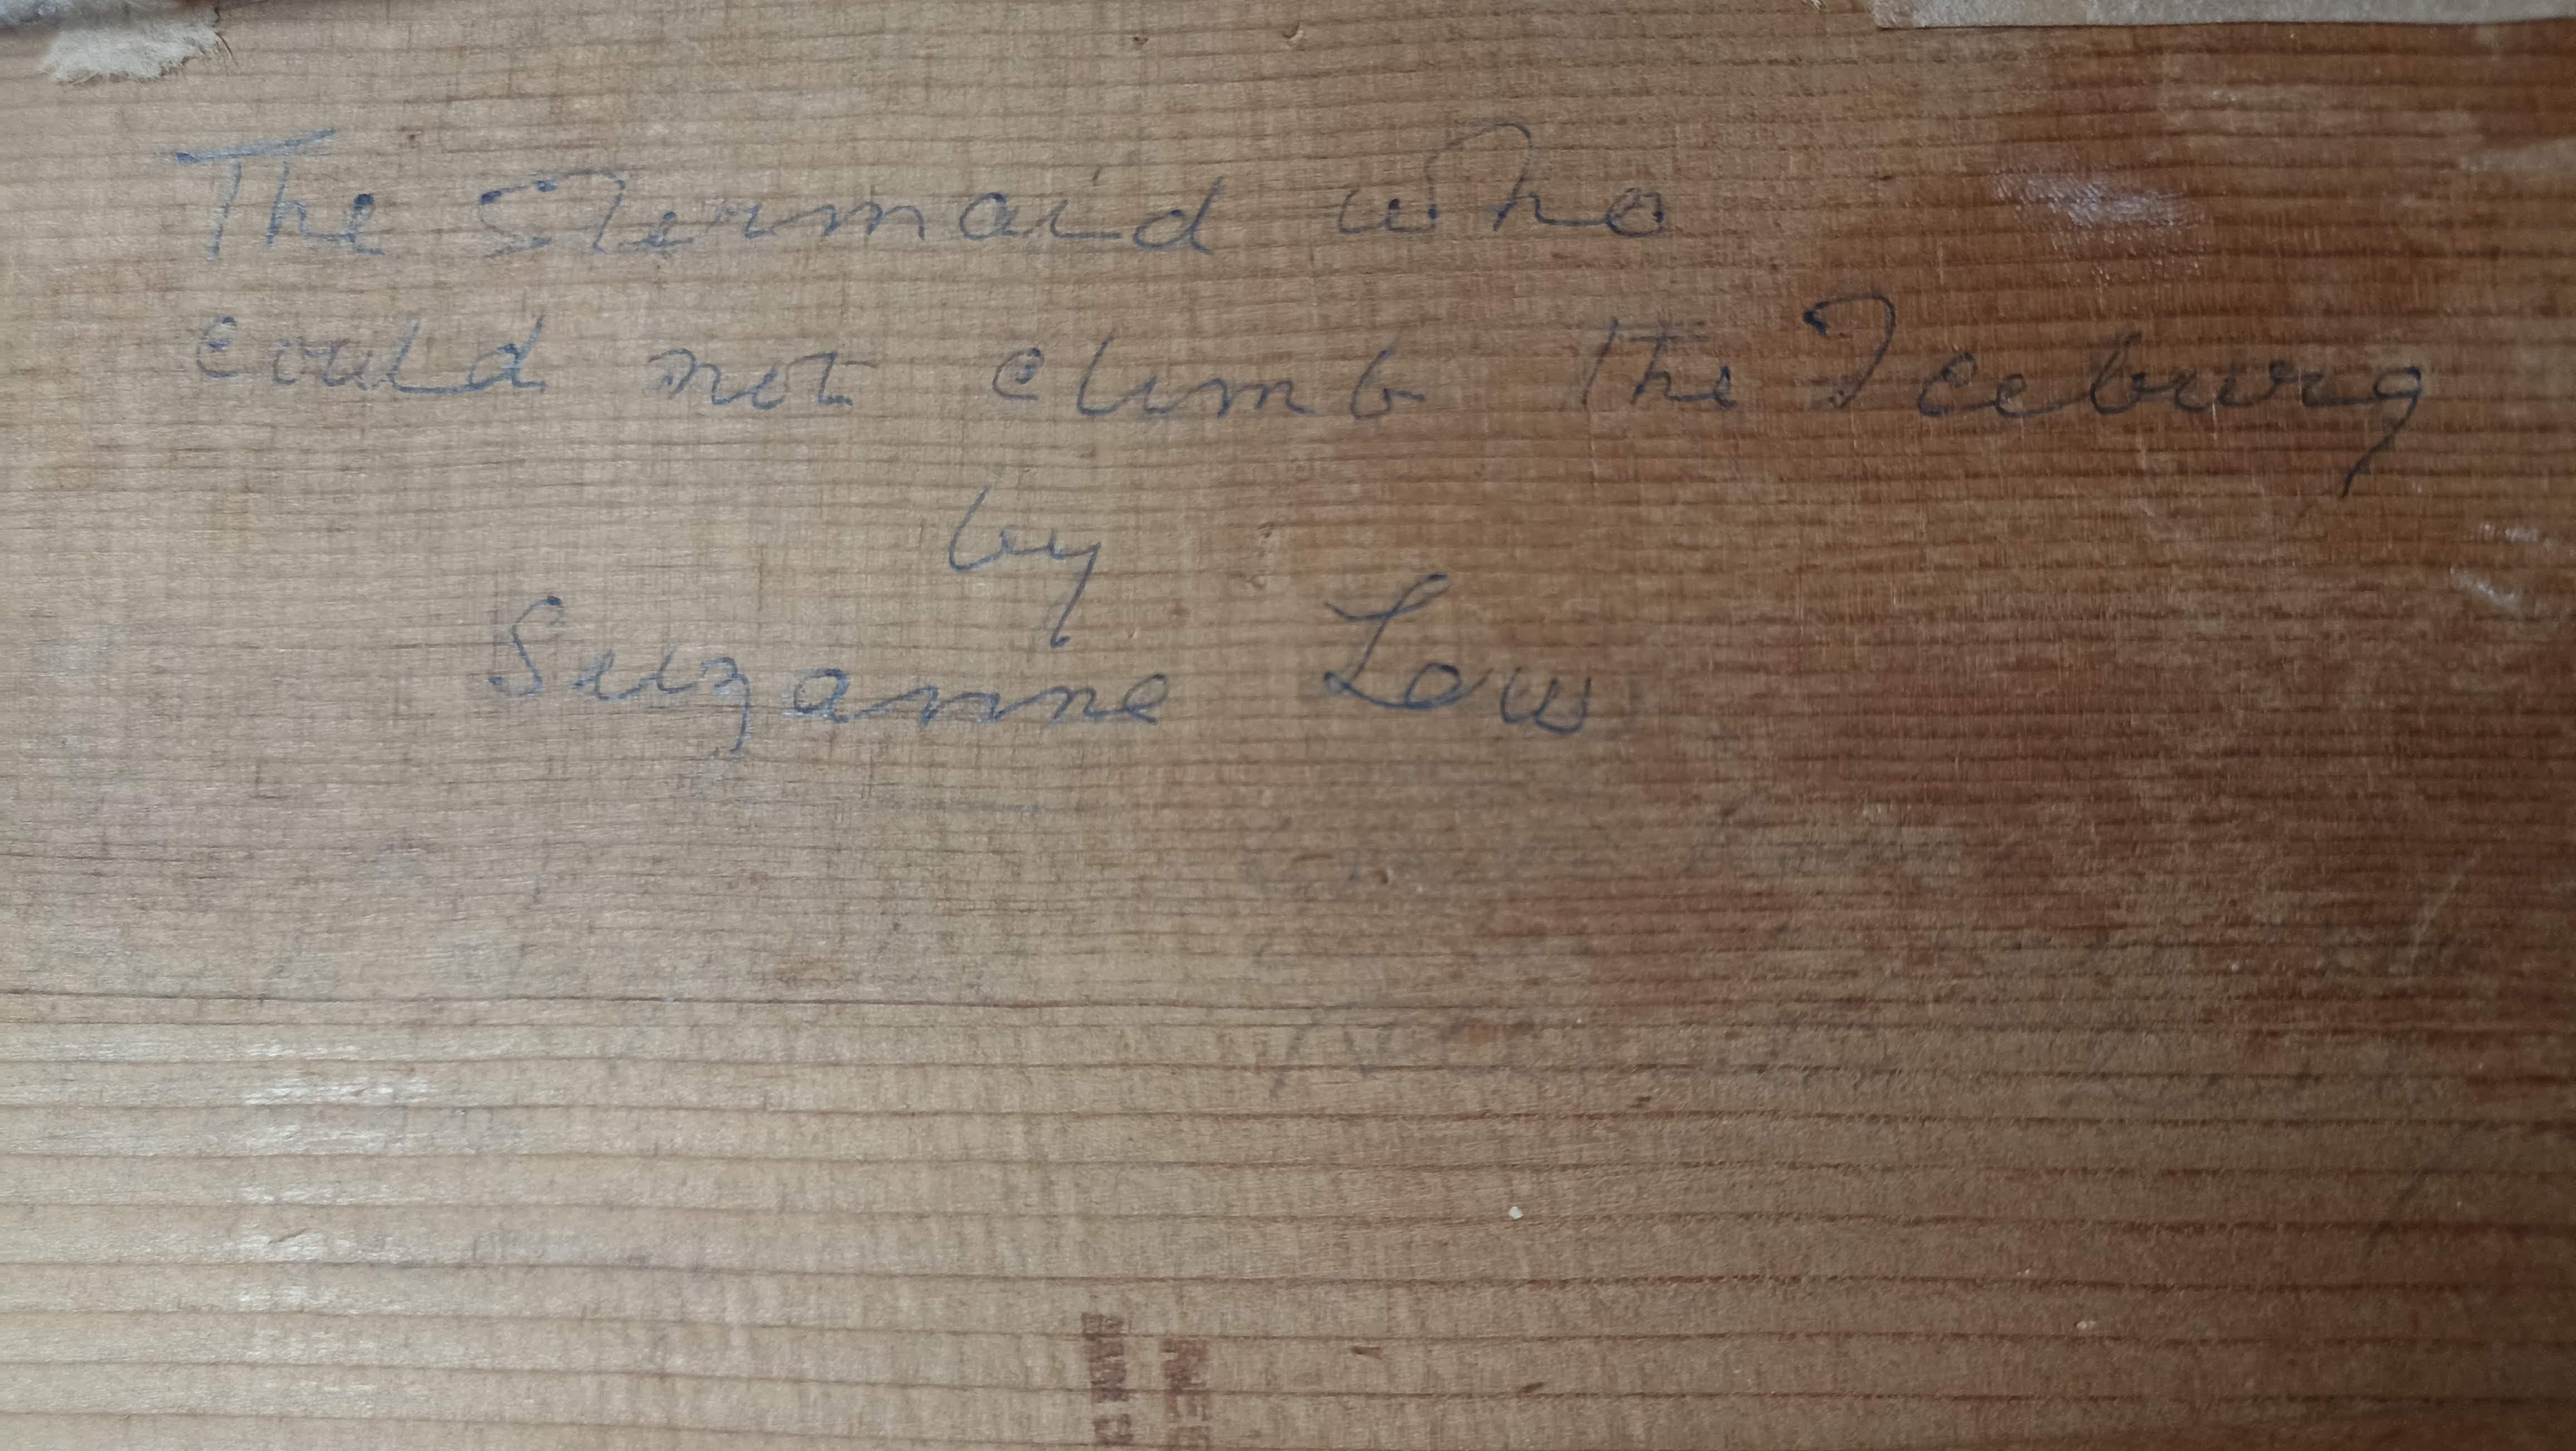 The Stermaid who
could not climb the Iceburg
by
Suzanne Low